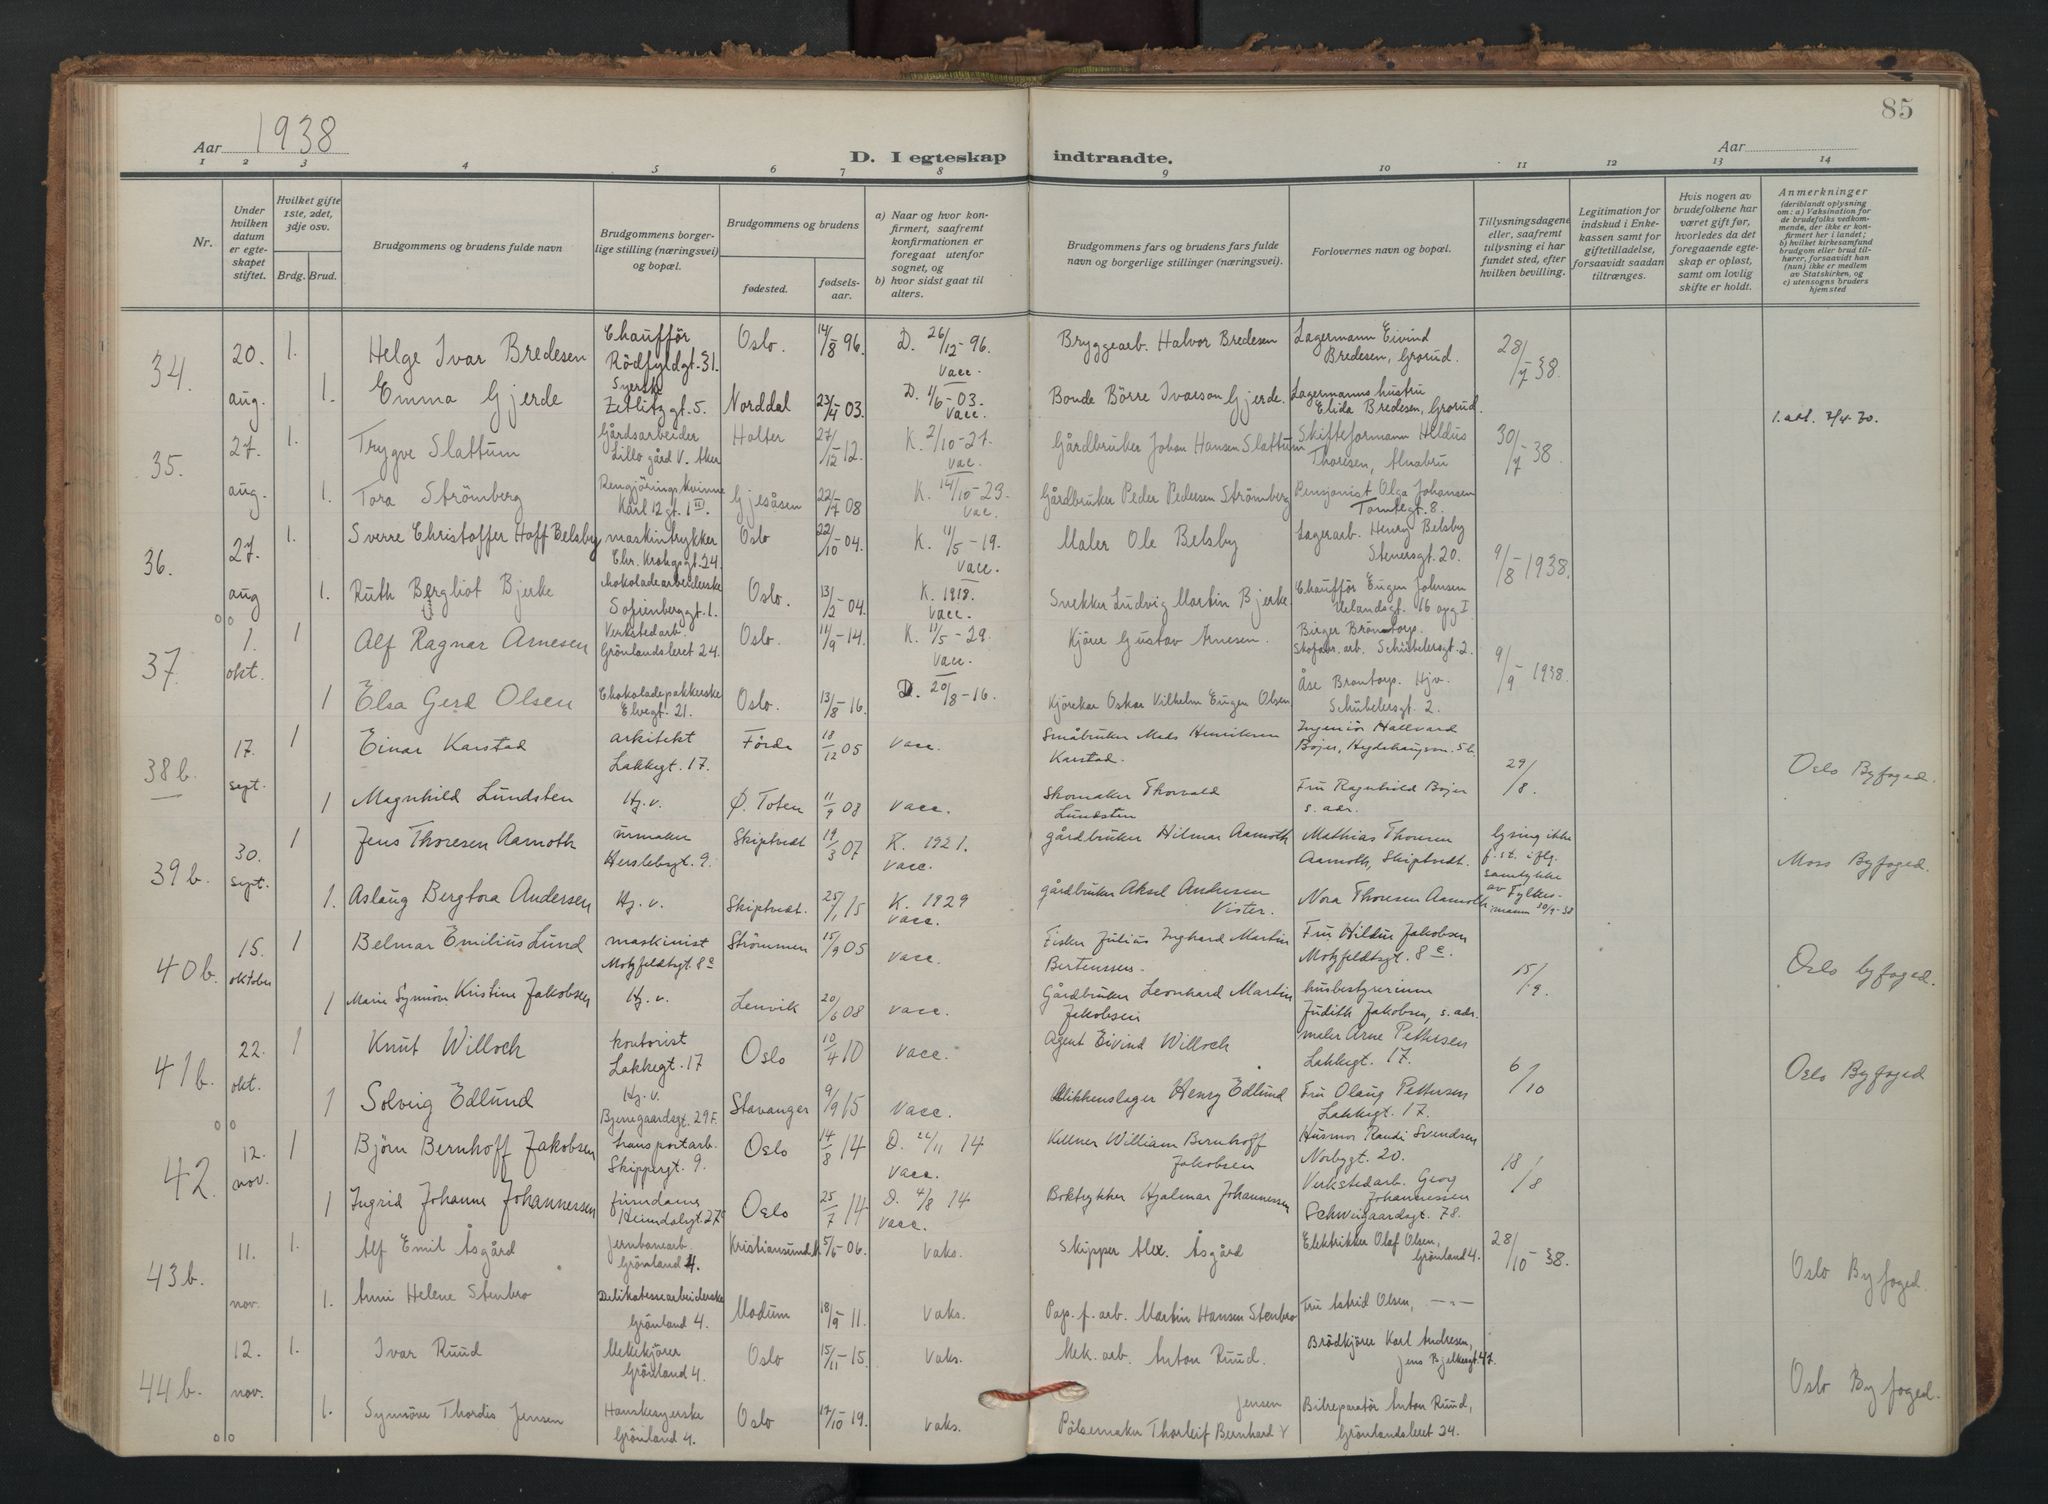 85
Aar 1938
D. I egteskap indtraadte.
Aar
1 2 3 4 5 6 7 8 9 10 11 12 13 14
Nr.
Under hvilken datum er egteskapet stiftet.
Hvilket gifte 1ste, 2det, 3dje osv.
Brdg. Brud.
Brudgommens og brudens fulde navn
Brudgommens borgerlige stilling (næringsvei) og bopæl.
Brudgommens og brudens
fødested.
fødselsaar.
a) Naar og hvor konfirmert, saafremt konfirmationen er foregaat utenfor sognet, og
b) hvor sidst gaat til alters.
Brudgommens fars og brudens fars fulde navn og borgerlige stillinger (næringsvei).
Forlovernes navn og bopæl.
Tillysningsdagene eller, saafremt tillysning ei har fundet sted, efter hvilken bevilling.
Legitimation for indskud i Enkekassen samt for giftetilladelse, forsaavidt saadan tiltrænges.
Hvis nogen av brudefolkene har været gift før, hvorledes da det foregaaende egteskap er opløst, samt om lovlig skifte er holdt.
Anmerkninger
(deriblandt oplysning om: a) Vaksination for de brudefolks vedkommende, der ikke er konfirmert her i landet; b) hvilket kirkesamfund brudgom eller brud tilhører, forsaavidt han (hun) ikke er medlem av Statskirken, og c) utensogns bruders hjemsted
34. 20. aug. 1. Helge Ivar Bredesen Chauffør Rödfyldgt. 31. Oslo. 14/8 96. D. 26/12-96. vacc. Bryggearb. Halvor Bredesen Lagermann Eivind Bredesen, Grorud. 28/7 38.
1. Emma Gjerde Syerske Zetlitzgt. 5. Norddal 23/4 03. D. 1/6-03. vacc. Bonde Börre Ivarson Gjerde. Lagermanns hustru Elida Bredesen, Grorud.
35. 27. aug. 1. Trygve Slattum Gårdsarbeider Lillo gård V. Aker Holter 27/12 12. K. 2/10-27. vac. Gårdbruker Johan Hansen Slattum Skifteformann Heldus Thoresen, Alnabru 30/7-38.
1. Tora Strömberg Rengjöringskvinne Karl 12 gt. 1 III. Gjesåsen 22/7 08 K. 14/10-23. vac. Gårdbruker Peder Pedersen Strömberg Pensjonist Olga Johansen Tomtegt. 8.
36. 27. aug 1. Sverre Christoffer Hoff Belsby maskintrykker Chr. Krohgsgt. 24 Oslo 22/10-04. K. 11/5-19. vacc. Maler Ole Belsby Lagerarb. Henry Belsby Stenersgt. 20. 9/8-1938.
1. Ruth Bergliot Bjerke chokoladearbeiderske Sofienberggt. 1. Oslo. 13/2-04. K. 1918. vacc. Snekker Ludvig Martin Bjerke Chauffør Eugen Johnsen Uelandsgt. 16 opg I
37. 1. okt. 1 Alf Ragnar Arnesen Verkstedarb. Grönlandsleret 24. Oslo. 11/9-14. K. 11/5-29. vacc. Kjörer Gustav Arnesen. Birger Bröntorp. Skofabr. arb. Schübelersgt. 2. 9/9-1938.
1 Elsa Gerd Olsen Chokoladepakkerske Elvegt. 21. Oslo. 13/8-16. D. 20/8-16. Kjörekar Oskar Vilhelm Eugen Olsen Åse Bröntorp. Hjv. Schübelersgt. 2.
38b. 17. sept. 1 Einar Karstad arkitekt Lakkegt. 17. Förde 18/12 05 vacc. Småbruker Mads Henriksen Karstad. Ingeniör Hallvard Bojer, Hegdehaugsvn. 5b. 29/8. Oslo Byfoged.
1 Magnhild Lundsten Hj. v. Ø. Toten 11/9 08 vacc. Skomaker Thorvald Lundsten Fru Ragnhild Bojer s. adr.
39b. 30. sept. 1 Jens Thoresen Aamoth urmaker Herslebsgt. 9. Skiptvedt 19/3 07 K. 1921. vacc. gårdbruker Hilmar Aamoth Mathias Thoresen Aamoth, Skiptvedt. lysing ikke f. st. iflg. samtykke av Fylkesmann 30/9-38 Moss Byfoged.
1. Aslaug Bergtora Andersen Hj. v. Skiptvedt. 25/1 15 K. 1929 vacc. gårdbruker Aksel Andersen Vister. Nora Thoresen Aamoth
40b. 15. oktober 1 Belmar Emilius Lund maskinist Motzfeldtsgt. 8c Strömmen 15/9 05 vacc. Fisker Julius Inghard Martin Bertenssen. Fru Hildur Jakobsen Motzfeldtsgt. 8c. 15/9. Oslo byfoged.
1 Marie Synnöve Kristine Jakobsen Hj. v. Lenvik 20/6 08 vacc. Gårdbruker Leonhard Martin Jakobsen husbestyrerinne Judith Jakobsen, s. adr.
41b. 22. okt. 1 Knut Willoch kontorist Lakkegt. 17 Oslo 10/4 10 vacc. Agent Eivind Willoch maler Arne Pettersen Lakkegt. 17. 6/10 Oslo Byfoged
1 Solveig Edlund Hj. v. Bjerregaardsgt. 29F. Stavanger 9/9 15 vacc. Blikkenslager Henry Edlund Fru Olaug Pettersen Lakkegt. 17.
42. 12. nov. 1 Björn Bernhoff Jakobsen transportarb. Skippergt. 9. Oslo 14/8 14 D. 22/11 14 vacc. Kellner William Bernhoff Jakobsen Husmor Randi Svendsen Norbygt. 20. 18/8
1 Ingrid Johanne Johannessen Heimdalsgt. 27c Oslo 25/7 14 D. 4/8 14 vacc. Boktrykker Hjalmar Johannessen Verkstedarb. Georg Johannessen Schweigaardsgt. 78.
43b. 11. nov. 1. Alf Emil Åsgård Jernbanearb. Grönland 4 Kristiansund.N. 5/6-06. vaks. Skipper Alex. Åsgård Elektrikker Olaf Olsen, Grönland 4. 28/10-38. Oslo Byfoged.
1. Anni Helene Stenbro Delikatessearbeiderske Grönland 4. Modum 18/9-11. vaks. Pap. f. arb. Martin Hansen Stenbro Fru Astrid Olsen, -"-
44b. 12. nov. 1. Ivar Ruud Melkekjörer Grönland 4. Oslo 15/11-15. vaks. Mek. arb. Anton Ruud. Brödkjörer Karl Andresen, Jens Bjelkesgt. 47. Oslo Byfoged.
1. Synnöve Thordis Jensen Hanskesyerske Grönland 4. Oslo 17/10 19. vaks. Pölsemaker Thorleif Bernhard Jensen Bilreparatör Anton Ruud, Grönlandsleret 24.